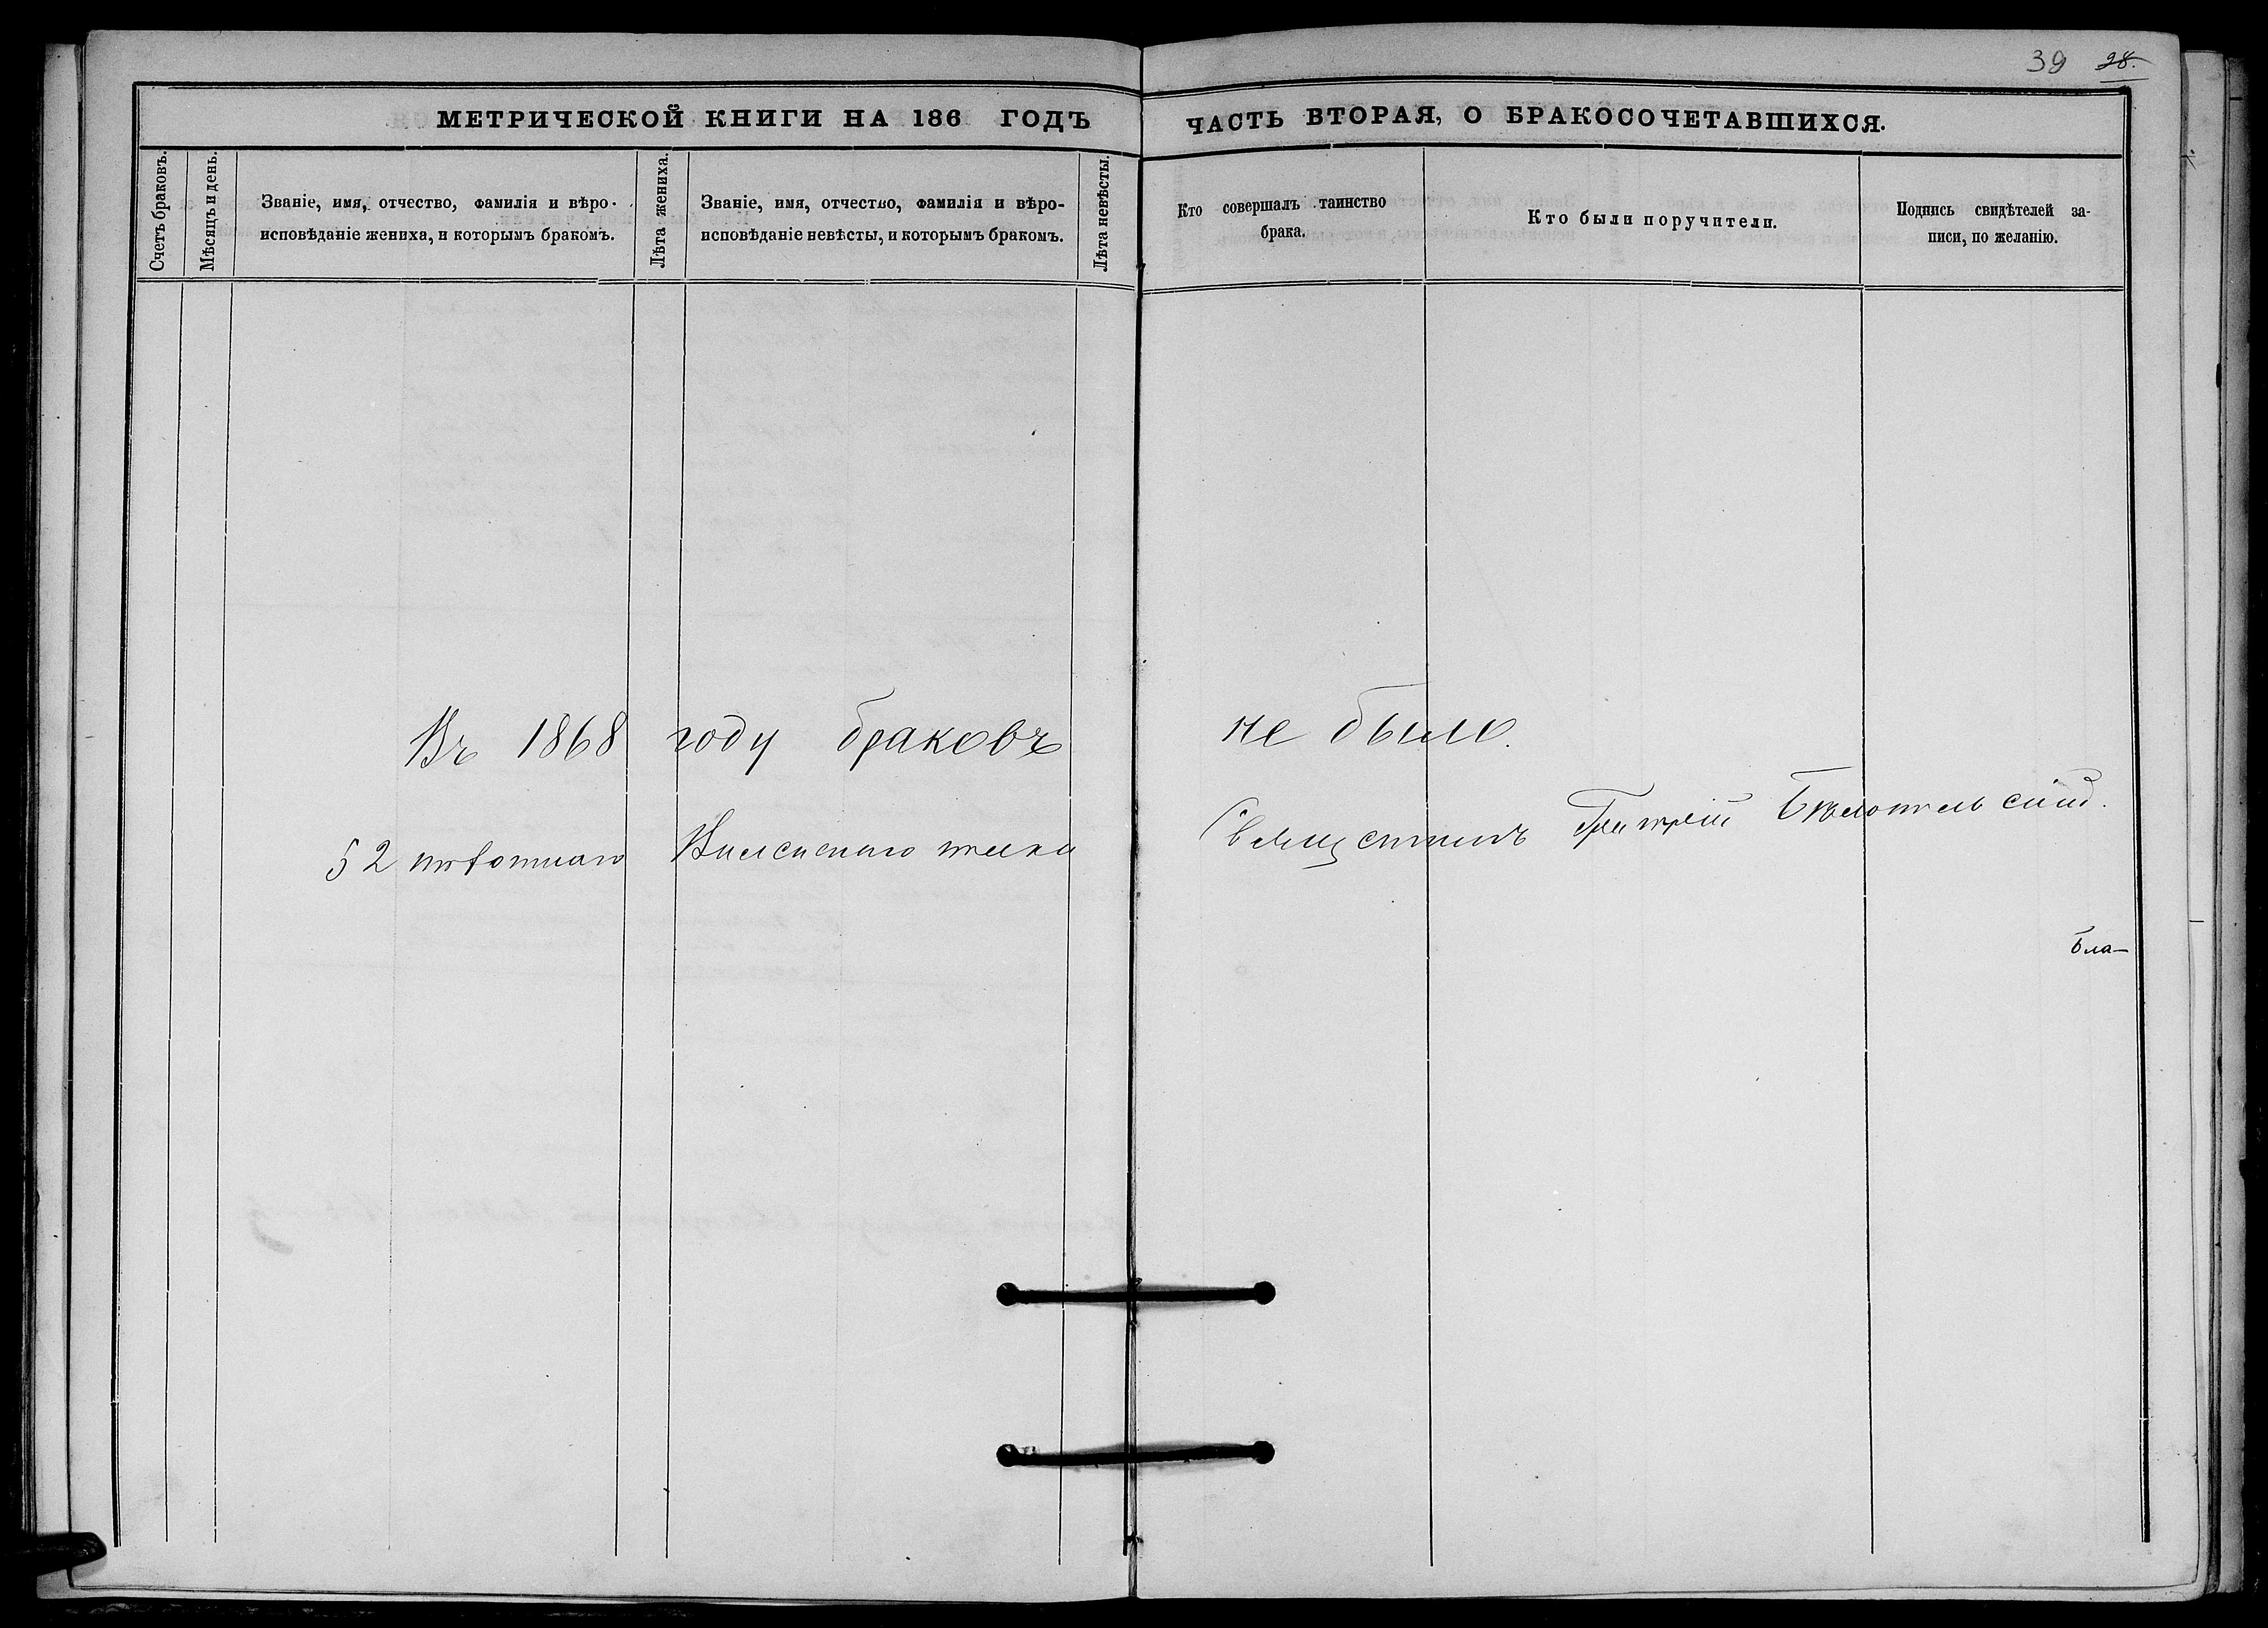 39 28.
МЕТРИЧЕСКОЙ КНИГИ НА 186 ГОДЪ
ЧАСТЬ ВТОРАЯ, О БРАКОСОЧЕТАВШИХСЯ.
Счетъ браковъ.
Мѣсяцъ и день.
Званіе, имя, отчество, фамилія и вѣро-
исповѣданіе жениха, и которымъ бракомъ.
Лѣта жениха.
Званіе, имя, отчество, фамилія и вѣро-
исповѣданіе невѣсты, и которымъ бракомъ.
Лѣта невѣсты.
Кто совершалъ таинство
брака.
Кто были поручители.
Подпись свидѣтелей за-
писи, по желанію.
Въ 1868 году браковъ не было.
52 пѣхотнаго Виленскаго полка Священникъ
Бла-